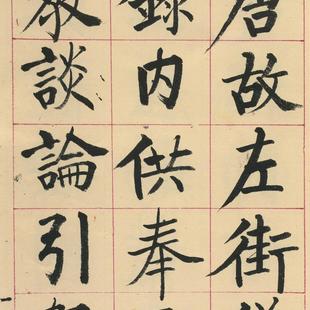 唐故左街
録内供奉
教談論引